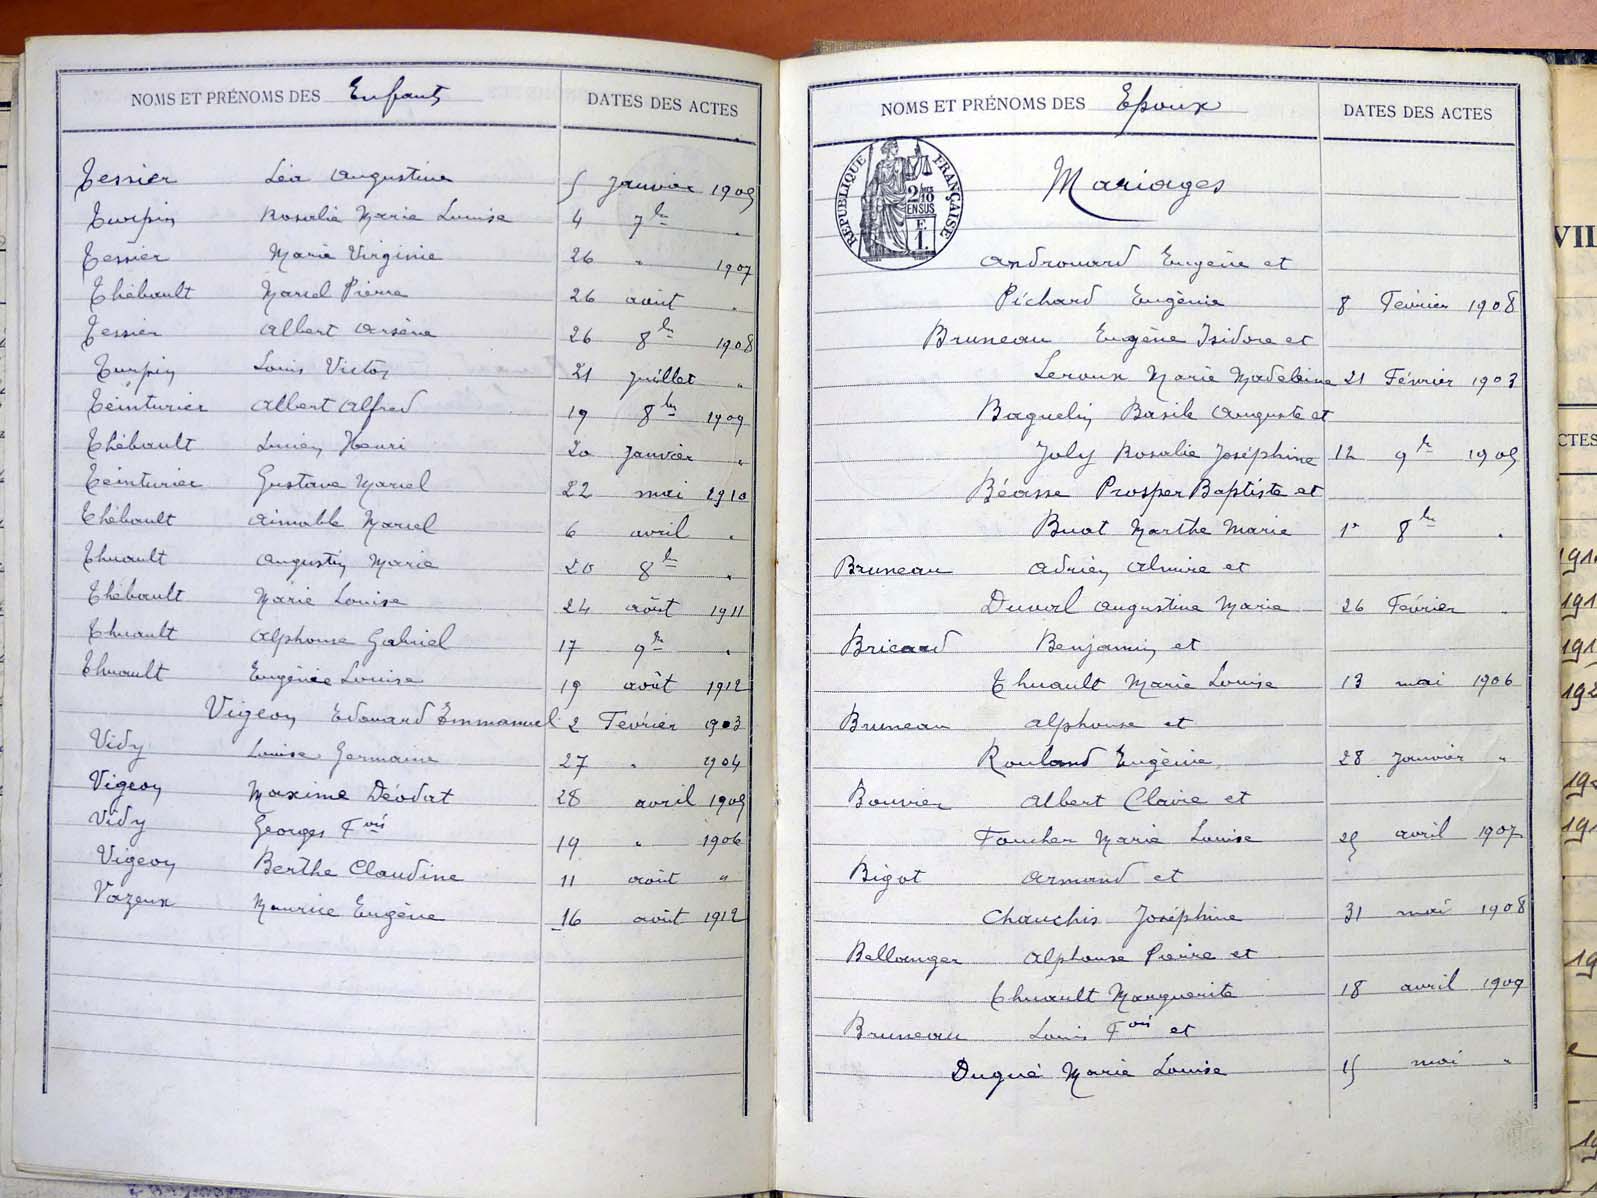 NOMS ET PRÉNOMS DES Enfants DATES DES ACTES
Tessier Léa Augustine 5 Janvier 1905
Turpin Rosalie Marie Louise 4 7bre "
Tessier Marie Virginie 26 " 1907
Thébault Marcel Pierre 26 août "
Tessier Albert Arsène 26 8bre 1908
Turpin Louis Victor 21 Juillet "
Teinturier Albert Alfred 19 8bre 1909
Thébault Lucien Henri 20 Janvier "
Teinturier Gustave Marcel 22 mai 1910
Thébault Aimable Marcel 6 avril "
Thuault Augustin Marie 20 8bre "
Thébault Marie Louise 24 août 1911
Thuault Alphonse Gabriel 17 9bre "
Thuault Eugénie Louise 19 août 1912
Vigeon Edouard Emmanuel 2 Février 1903
Vidy Louise Germaine 27 " 1904
Vigeon Maxime Déodat 28 avril 1905
Vidy Georges Fois 19 " 1906
Vigeon Berthe Claudine 11 août "
Vazeux Maurice Eugène 16 août 1912
NOMS ET PRÉNOMS DES Epoux DATES DES ACTES
RÉPUBLIQUE FRANÇAISE
2/10 EN SUS
E. 1.
Mariages
Androuard Eugène et
Pichard Eugénie 8 Février 1908
Bruneau Eugène Isidore et
Leroux Marie Madeleine 21 Février 1903
Baguelin Basile Auguste et
Joly Rosalie Joséphine 12 9bre 1905
Béasse Prosper Baptiste et
Buot Marthe Marie 1r 8bre "
Bruneau Adrien Almire et
Duval Augustine Marie 26 Février "
Bricard Benjamin et
Thuault Marie Louise 13 mai 1906
Bruneau Alphonse et
Rouland Eugénie 28 Janvier "
Bouvier Albert Claire et
Foucher Marie Louise 25 avril 1907
Bigot Armand et
Chauchis Joséphine 31 mai 1908
Bellanger Alphonse Pierre et
Thuault Marguerite 18 avril 1909
Bruneau Louis Fois et
Dugué Marie Louise 15 mai "